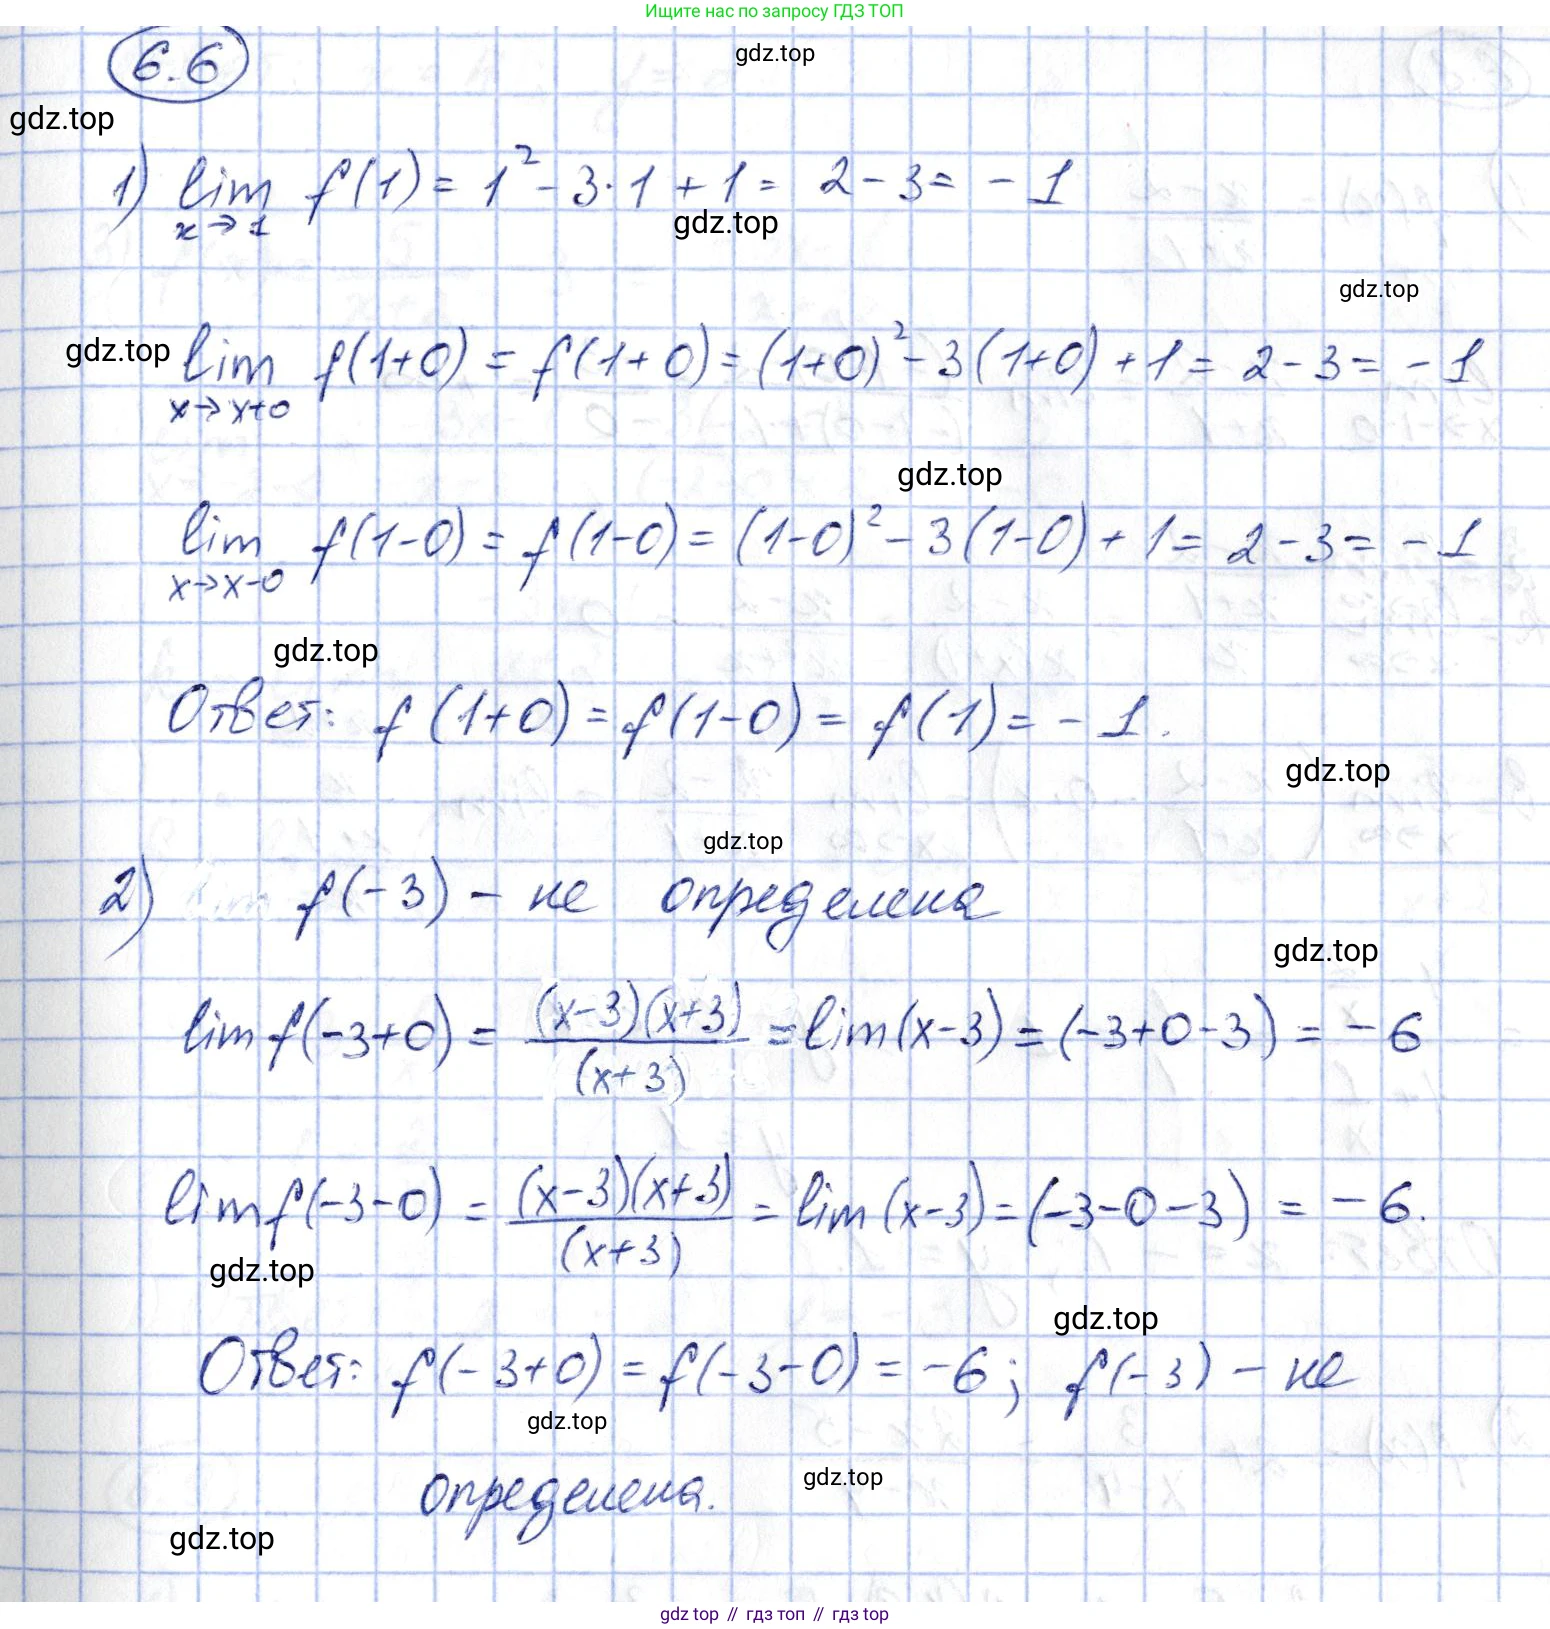 Ищите нас по запросу ГДЗ ТОП
gdz.top
6.6
gdz.top
1) lim f(1) = 1² - 3·1 + 1 = 2 - 3 = - 1
x→1
gdz.top
gdz.top
gdz.top
lim f(1+0) = f(1+0) = (1+0)² - 3(1+0) + 1 = 2 - 3 = - 1
x→x+0
gdz.top
lim f(1-0) = f(1-0) = (1-0)² - 3(1-0) + 1 = 2 - 3 = - 1
x→x-0
gdz.top
Ответ: f(1+0) = f(1-0) = f(1) = - 1.
gdz.top
gdz.top
2) f(-3) - не определена
gdz.top
lim f(-3+0) = (x-3)(x+3)/(x+3) = lim(x-3) = (-3+0-3) = - 6
lim f(-3-0) = (x-3)(x+3)/(x+3) = lim(x-3) = (-3-0-3) = - 6.
gdz.top
gdz.top
Ответ: f(-3+0) = f(-3-0) = -6; f(-3) - не
gdz.top
определена.
gdz.top
gdz.top
gdz top // гдз топ // гдз top